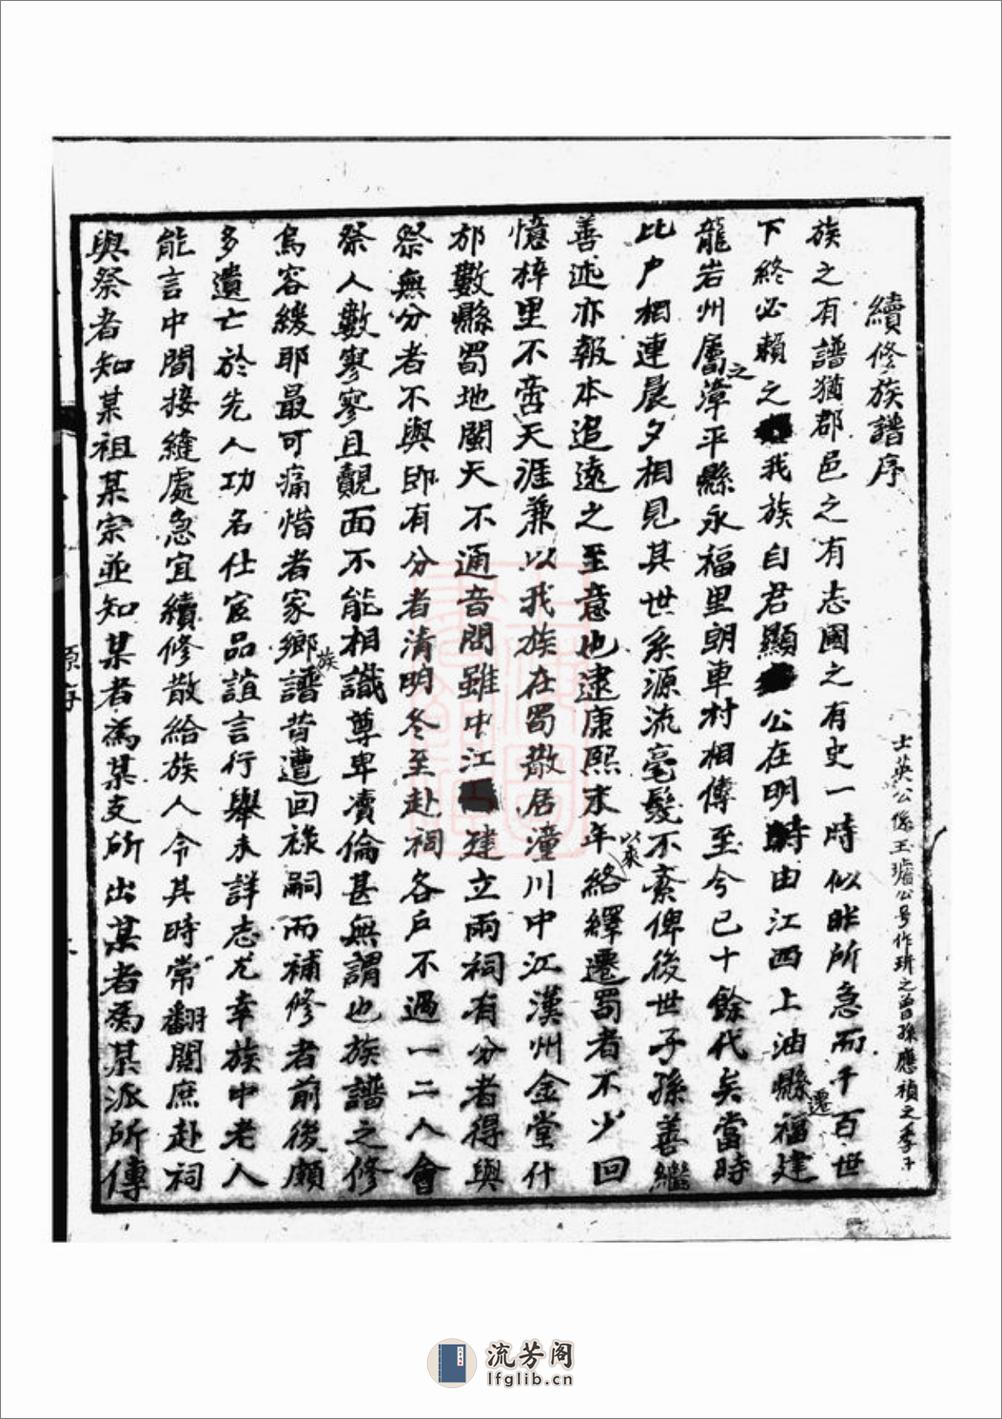 續修族譜序
士英公係玉璿公号作玥之曾孫應禎之季子
族之有譜猶郡邑之有志國之有史一時似非所急而千百世
下終必賴之我族自君顯公在明時由江西上油縣遷福建
龍岩州屬之漳平縣永福里朗車村相傳至今已十餘代矣當時
比户相連晨夕相見其世系源流毫髮不紊俾後世子孫善繼
善述亦報本追遠之至意也逮康熙末年以來絡繹遷蜀者不少回
憶梓里不啻天涯兼以我族在蜀散居潼川中江漢州金堂什
邡數縣蜀地闊天不通音問雖中江建立兩祠有分者得與
祭無分者不與即有分者清明冬至赴祠各户不過一二人會
祭人數寥寥且覿面不能相識尊卑凟倫甚無謂也族譜之修
烏容緩耶最可痛惜者家鄉族譜昔遭回祿嗣而補修者前後頗
多遺亡於先人功名仕宦品誼言行舉未詳志尤幸族中老人
能言中間接縫處急宜續修散給族人令其時常翻閱庶赴祠
與祭者知某祖某宗並知某者為某支所出某者為某派所傳
源序
流芳阁
lfglib.cn